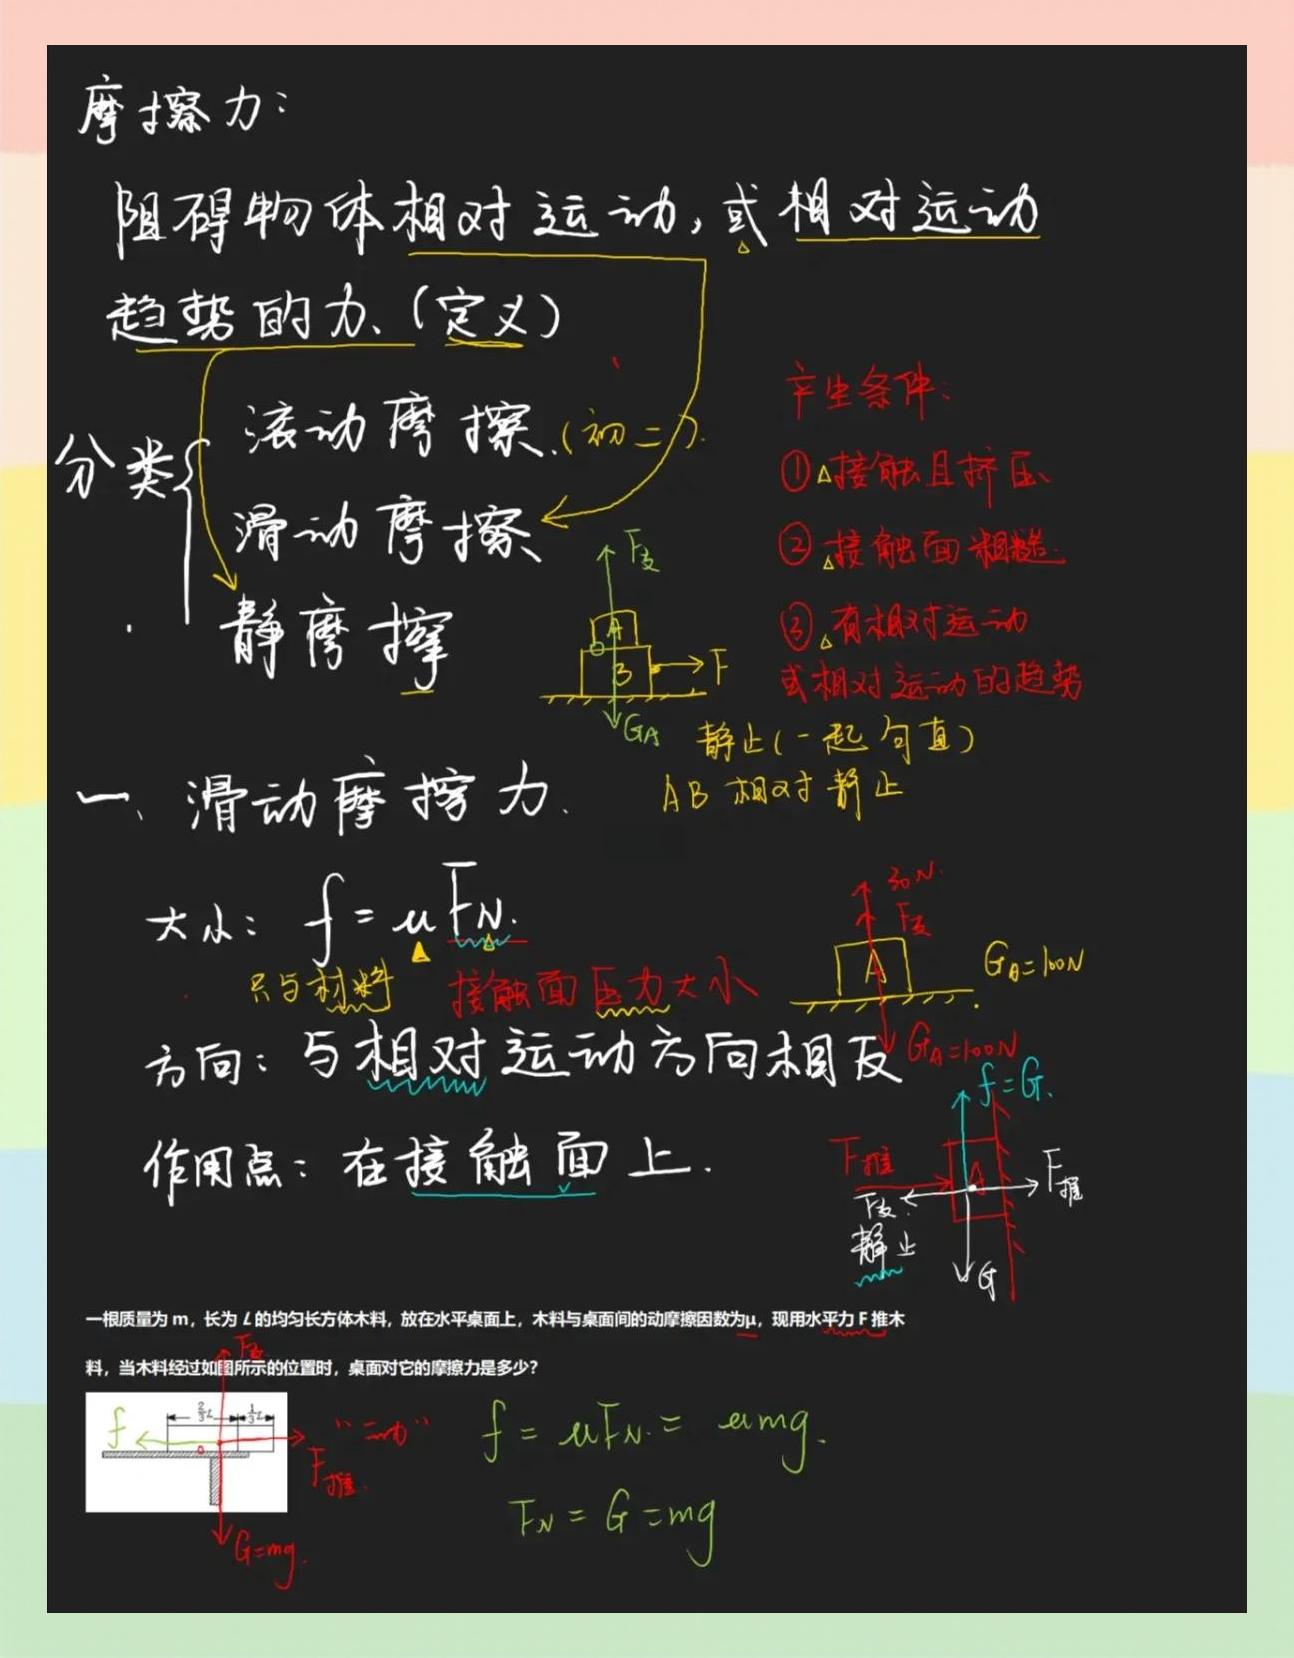 摩擦力：
阻碍物体相对运动，或相对运动
趋势的力、(定义)
分类
滚动摩擦.(初二).
滑动摩擦
静摩擦
产生条件:
①接触且挤压、
②接触面粗糙.
③有相对运动
或相对运动的趋势
F支
A
B
F
GA
静止(一起匀直)
AB相对静止
一、滑动摩擦力.
大小: f=μFN.
只与材料
接触面压力大小
30N.
F支
A
GA=100N
GA=100N
方向: 与相对运动方向相反
作用点: 在接触面上.
f=G.
F推
A
F推
F支
静止
G
一根质量为 m，长为 L 的均匀长方体木料，放在水平桌面上，木料与桌面间的动摩擦因数为μ，现用水平力 F 推木
料，当木料经过如图所示的位置时，桌面对它的摩擦力是多少？
F支
2/3 L
1/3 L
f
O
"动"
F推.
G=mg.
f=μFN.=μmg.
FN=G=mg